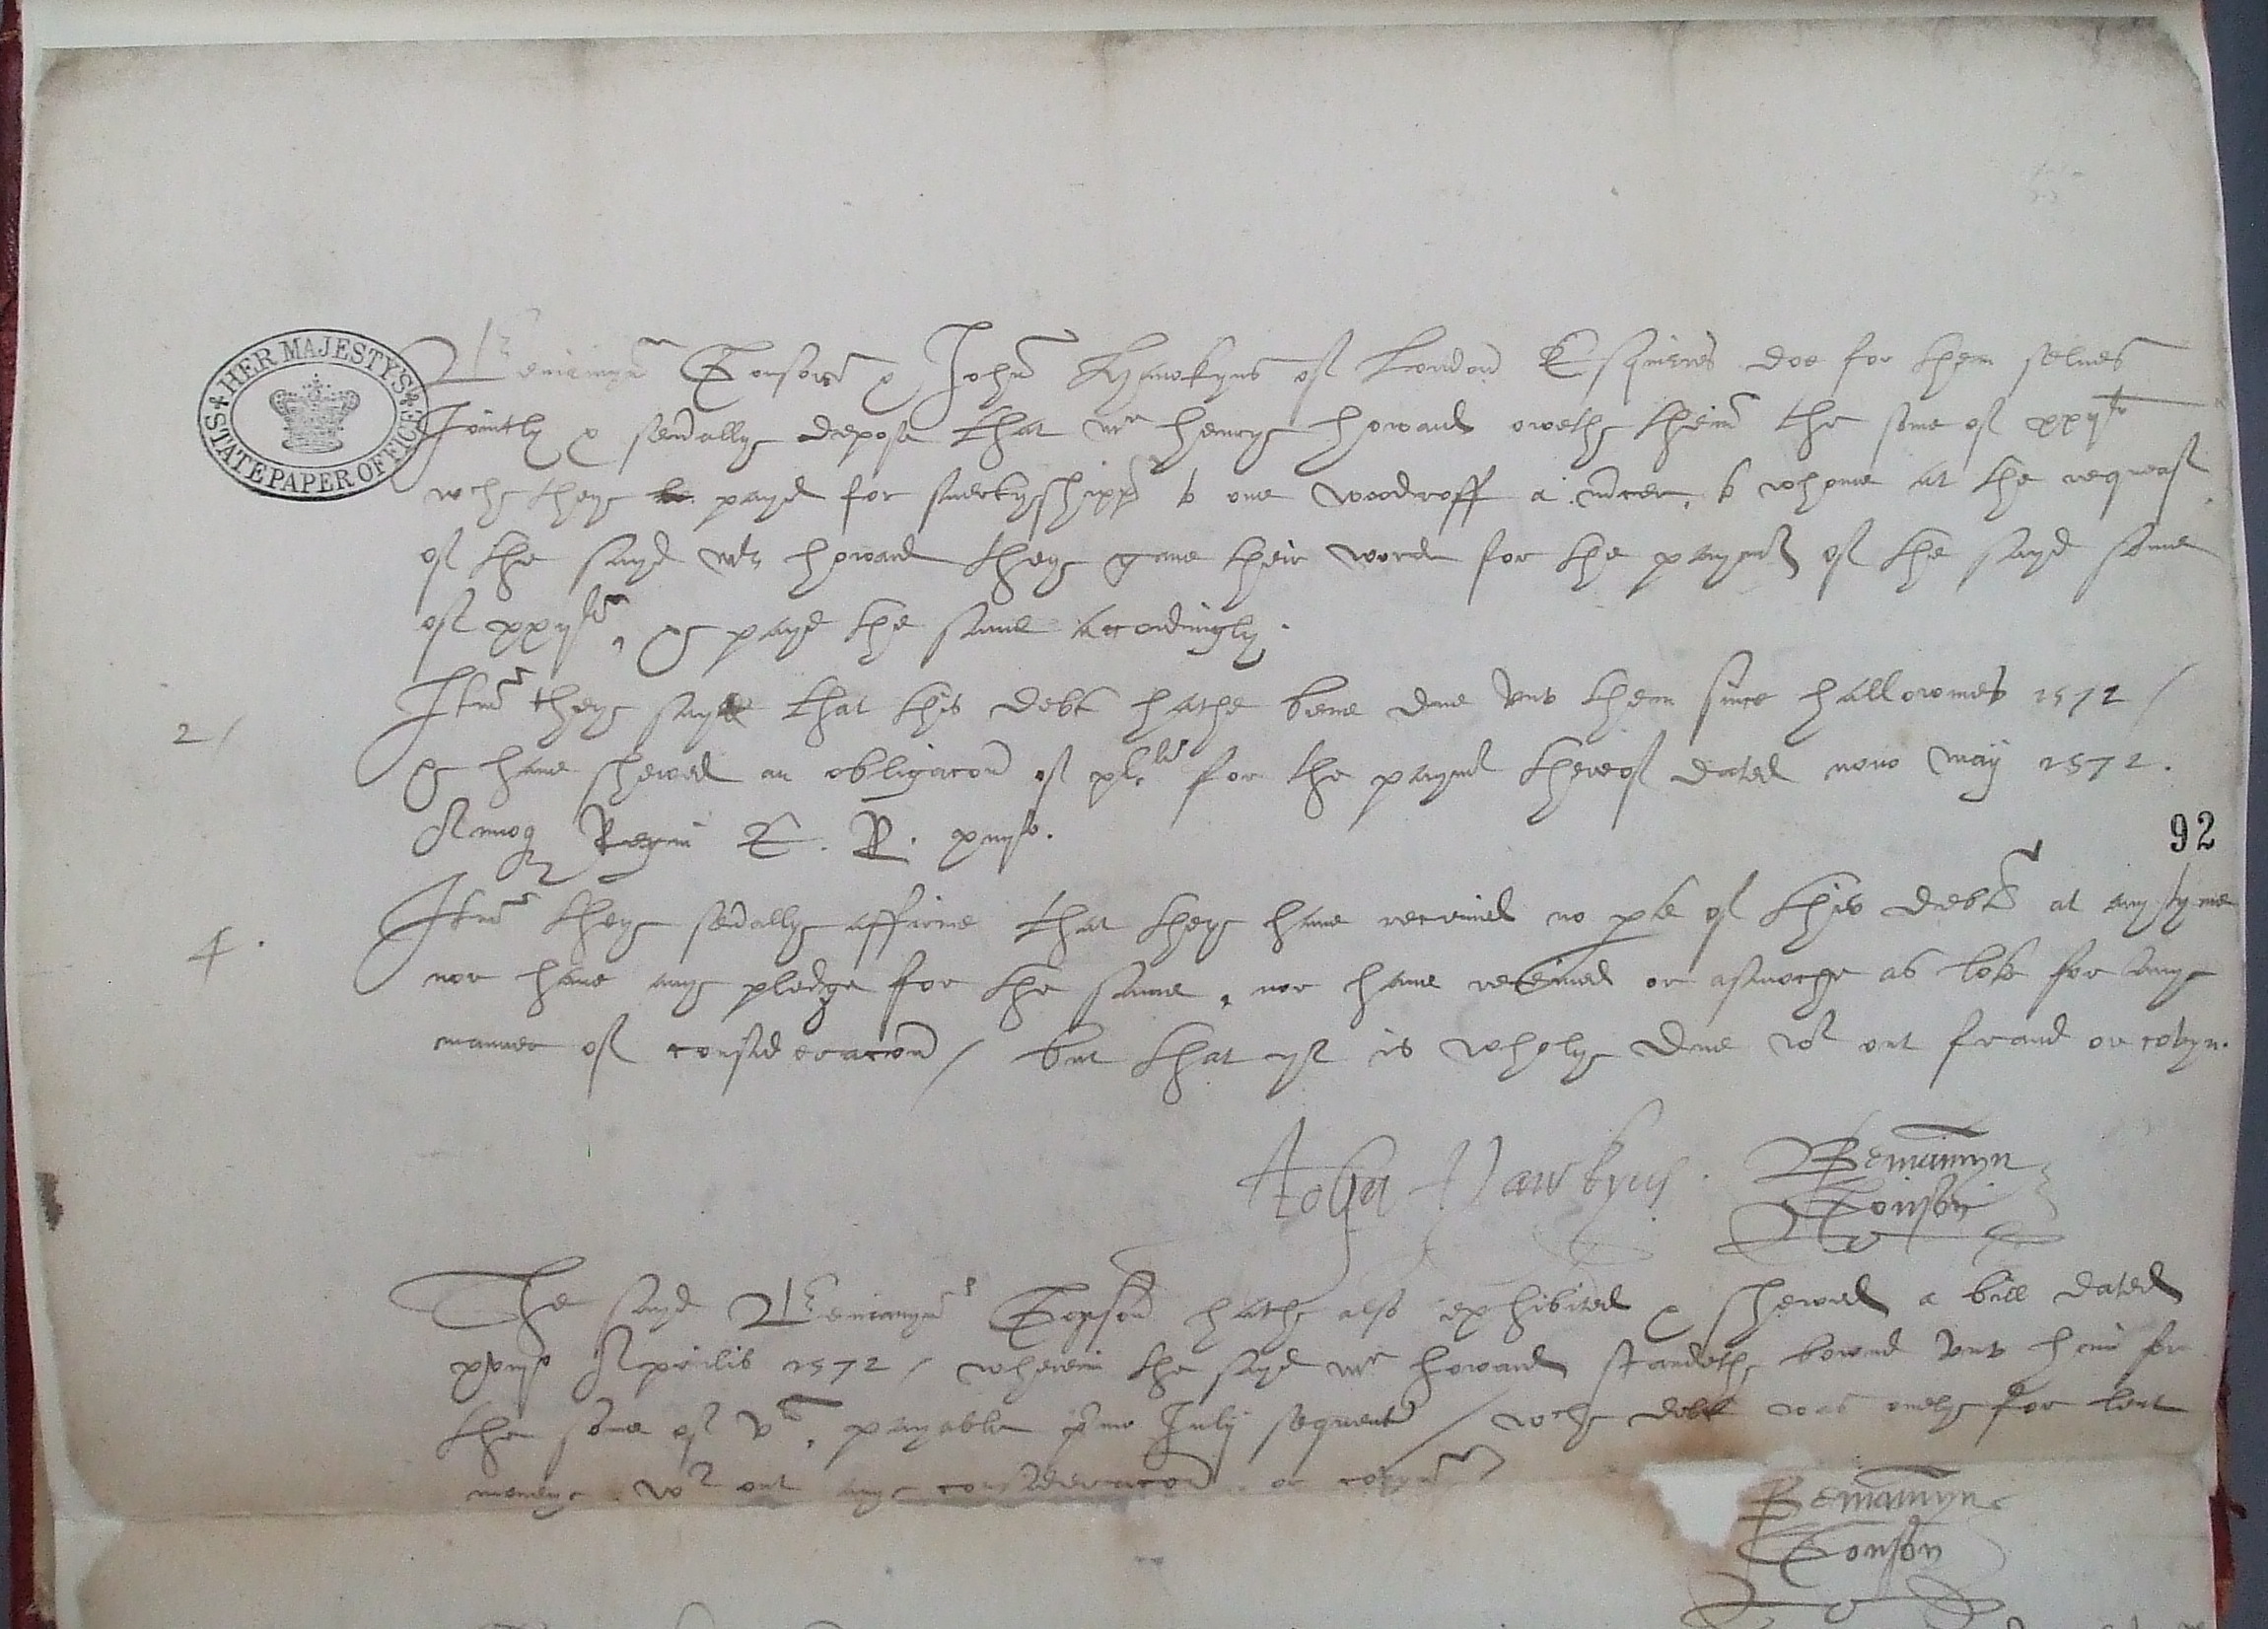 HER MAJESTY'S STATE PAPER OFFICE
Beniamyn Gonson & John Hawkyns of London Esquiers doe for them selues
Jointly & seuᵉally depose that mʳ henry howard oweth theim the some of xxijˡⁱ
wch they payd for suertyshipp to one Woodroff a mᵉcer, to whome at the request
of the sayd mʳ howard they gaue their word for the paymᵗ of the sayd some
of xxijˡⁱ, & payd the same accordingly.
2/
Itm they saye that this debt hathe bene due vnto them since hallowmes 1572/
& haue shewed an obligacon of xlˡⁱ for the paymt thereof dated nono may 1572.
Annoq Regni E. R. xiiijᵒ.
92
4.
Itm they seuᵉally affirme that they haue receiued no pte of this debt at any tyme
nor haue any pledge for the same, nor haue receiued or asmoche as loke for any
manner of consideracon/ but that yt is wholy due wᵗ out fraud or covyn.
John Hawkyns.
Beniamyn
Gonson
The sayd Beniamyn Gonson hath also exhibited & shewed a bill dated
Aprilis 1572/ wherein the sayd mʳ howard standeth bownd vnto him for
the some of vˡⁱ, payable pᵉmo July sequent/ wch debt was onely for lent
money wᵗ out any consideracon or covyn
Beniamyn
Gonson